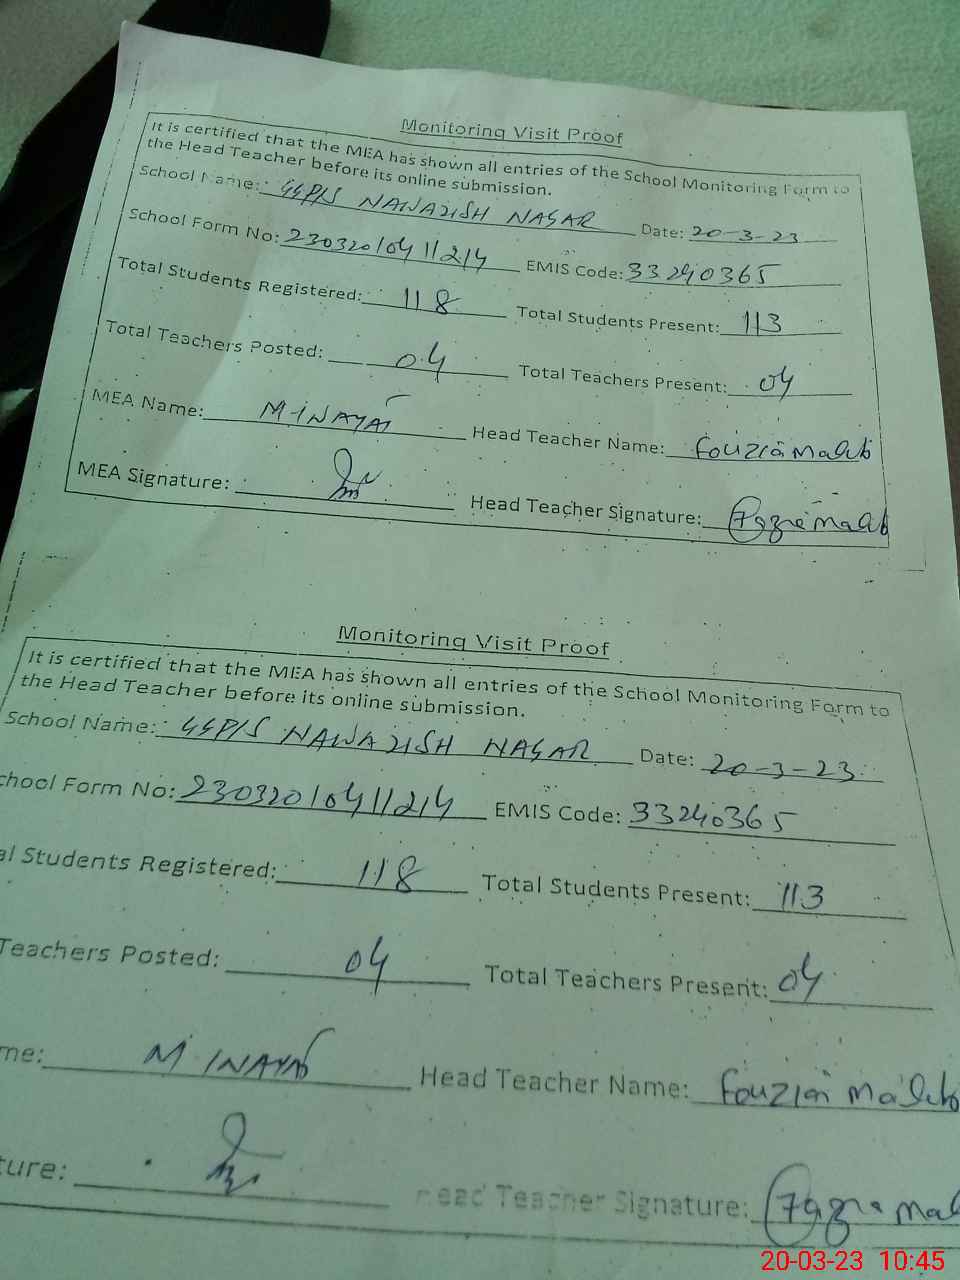 Monitoring Visit Proof
It is certified that the MEA has shown all entries of the School Monitoring Form to
the Head Teacher before its online submission.
School Name: GGP/S NAWAZISH NAGAR Date: 20-3-23
School Form No: 23032010411214 EMIS Code: 33240365
Total Students Registered: 118 Total Students Present: 113
Total Teachers Posted: 04 Total Teachers Present: 04
MEA Name: M·INAYAT Head Teacher Name: Fouzia Malik
MEA Signature: Head Teacher Signature:
Monitoring Visit Proof
It is certified that the MEA has shown all entries of the School Monitoring Form to
the Head Teacher before its online submission.
School Name: GGP/S NAWAZISH NAGAR Date: 20-3-23
chool Form No: 23032010411214 EMIS Code: 33240365
al Students Registered: 118 Total Students Present: 113
Teachers Posted: 04 Total Teachers Present: 04
me: M·INAYAT Head Teacher Name: Fouzia Malik
ture: Head Teacher Signature:
20-03-23 10:45